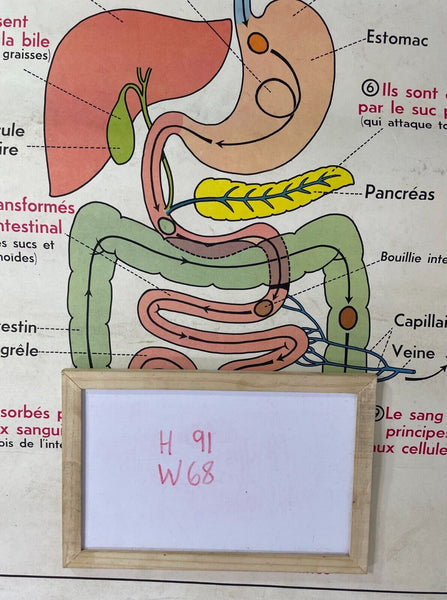 sent
la bile
graisses)
Estomac
⑥ Ils sont
par le suc
(qui attaque
ire
Pancréas
intestinal
es sucs et
Bouillie inte
estin
grêle
Capillai
Veine
sorbés
x sangui
ois de l'inte
Le sang
principe
ux cellule
H 91
W68